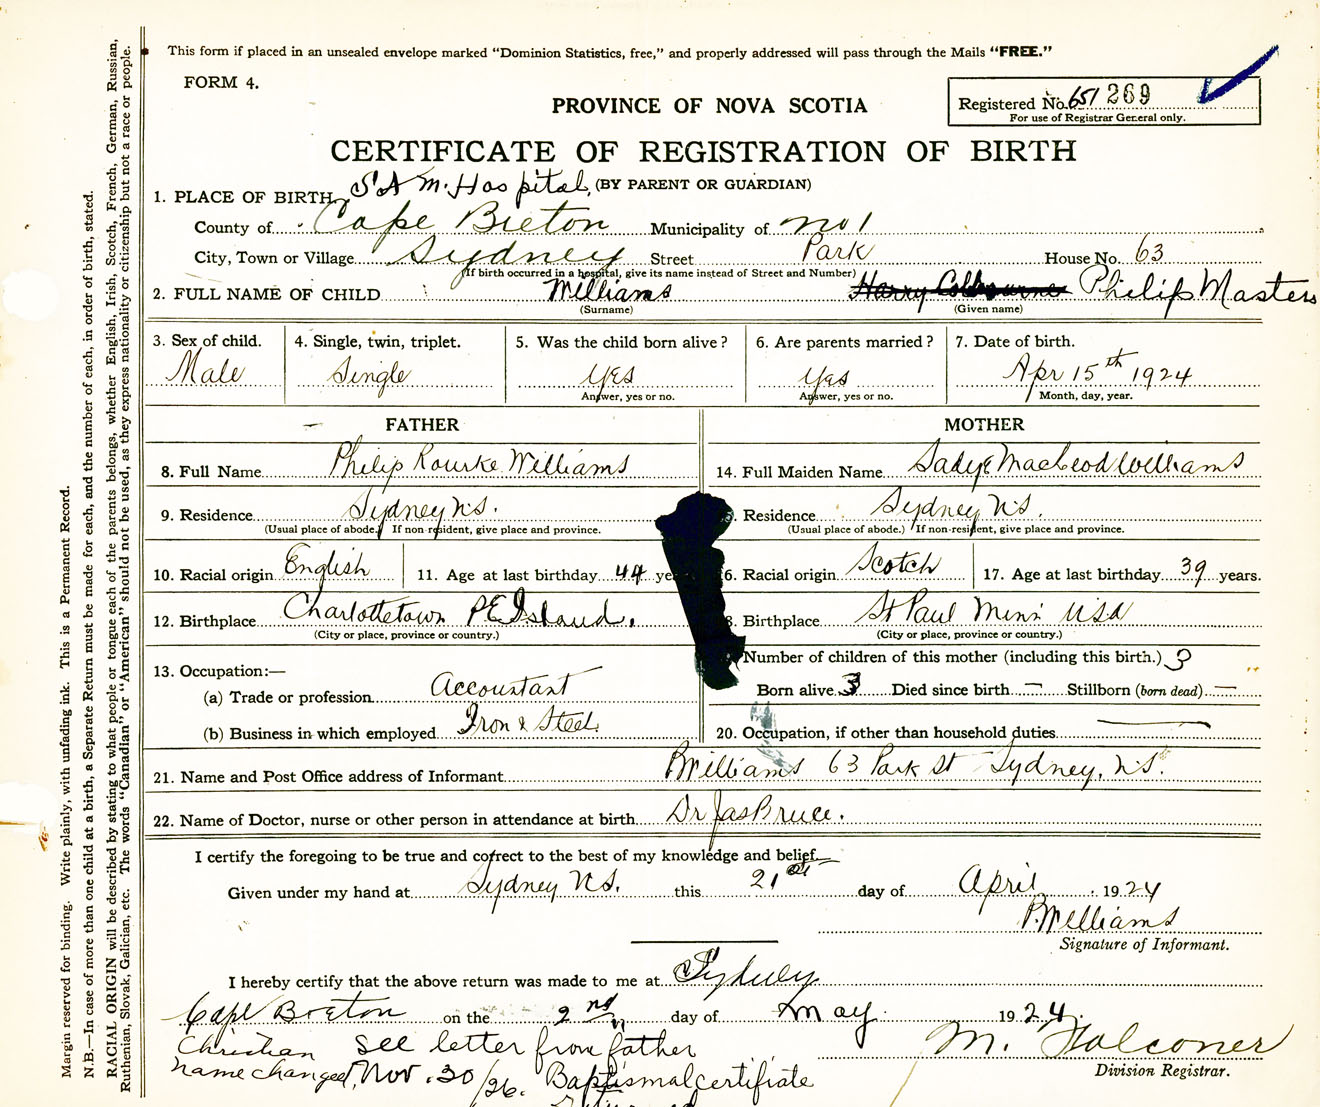 This form if placed in an unsealed envelope marked “Dominion Statistics, free,” and properly addressed will pass through the Mails “FREE.”
FORM 4.
PROVINCE OF NOVA SCOTIA
Registered No. 651 269
For use of Registrar General only.
CERTIFICATE OF REGISTRATION OF BIRTH
(BY PARENT OR GUARDIAN)
1. PLACE OF BIRTH, S A M. Hospital,
County of Cape Breton Municipality of No 1
City, Town or Village Sydney Street Park House No. 63
(If birth occurred in a hospital, give its name instead of Street and Number)
2. FULL NAME OF CHILD Williams Harry Colbourne Philip Masters
(Surname) (Given name)
3. Sex of child. 4. Single, twin, triplet. 5. Was the child born alive? 6. Are parents married? 7. Date of birth.
Male Single Yes Yes Apr 15th 1924
Answer, yes or no. Answer, yes or no. Month, day, year.
FATHER MOTHER
8. Full Name Philip Rourke Williams 14. Full Maiden Name Sadye MacLeod Williams
9. Residence Sydney N.S. Residence Sydney N.S.
(Usual place of abode.) If non-resident, give place and province. (Usual place of abode.) If non-resident, give place and province.
10. Racial origin English 11. Age at last birthday 44 ye 6. Racial origin Scotch 17. Age at last birthday 39 years.
12. Birthplace Charlottetown P E Island. Birthplace St Paul Minn USA
(City or place, province or country.) (City or place, province or country.)
Number of children of this mother (including this birth.) 3
13. Occupation:—
(a) Trade or profession Accountant Born alive 3 Died since birth — Stillborn (born dead) —
(b) Business in which employed Iron & Steel 20. Occupation, if other than household duties
21. Name and Post Office address of Informant P Williams 63 Park St Sydney, N.S.
22. Name of Doctor, nurse or other person in attendance at birth Dr Jas Bruce.
I certify the foregoing to be true and correct to the best of my knowledge and belief.
Given under my hand at Sydney N.S. this 21st day of April 1924
P. Williams
Signature of Informant.
I hereby certify that the above return was made to me at Sydney
Cape Breton on the 2nd day of May 1924.
M. Falconer
Division Registrar.
Christian see letter from father
name changed, Nov. 30/26. Baptismal certificate
Margin reserved for binding. Write plainly, with unfading ink. This is a Permanent Record.
N.B.—In case of more than one child at a birth, a Separate Return must be made for each, and the number of each, in order of birth, stated.
RACIAL ORIGIN will be described by stating to what people or tongue each of the parents belongs, whether English, Irish, Scotch, French, German, Russian,
Ruthenian, Slovak, Galician, etc. The words “Canadian” or “American” should not be used, as they express nationality or citizenship but not a race or people.